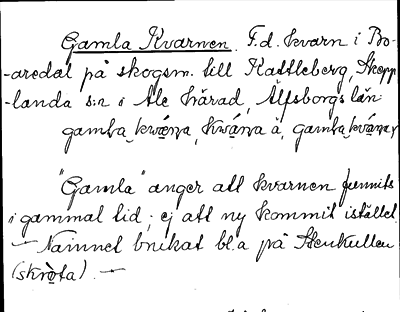 Gamla Kvarnen. F.d. kvarn i Bo-
-aredal på skogsm. till Kattleberg, Skepp
-landa s:n i Ale härad, Älfsborgs län
gamla kwárna, kwárna ä, gamla kvárna
"Gamla" anger att kvarnen funnits
i gammal tid, ej att ny kommit istället.
— Namnet brukat bl.a på Stenkullen
(skrota) —